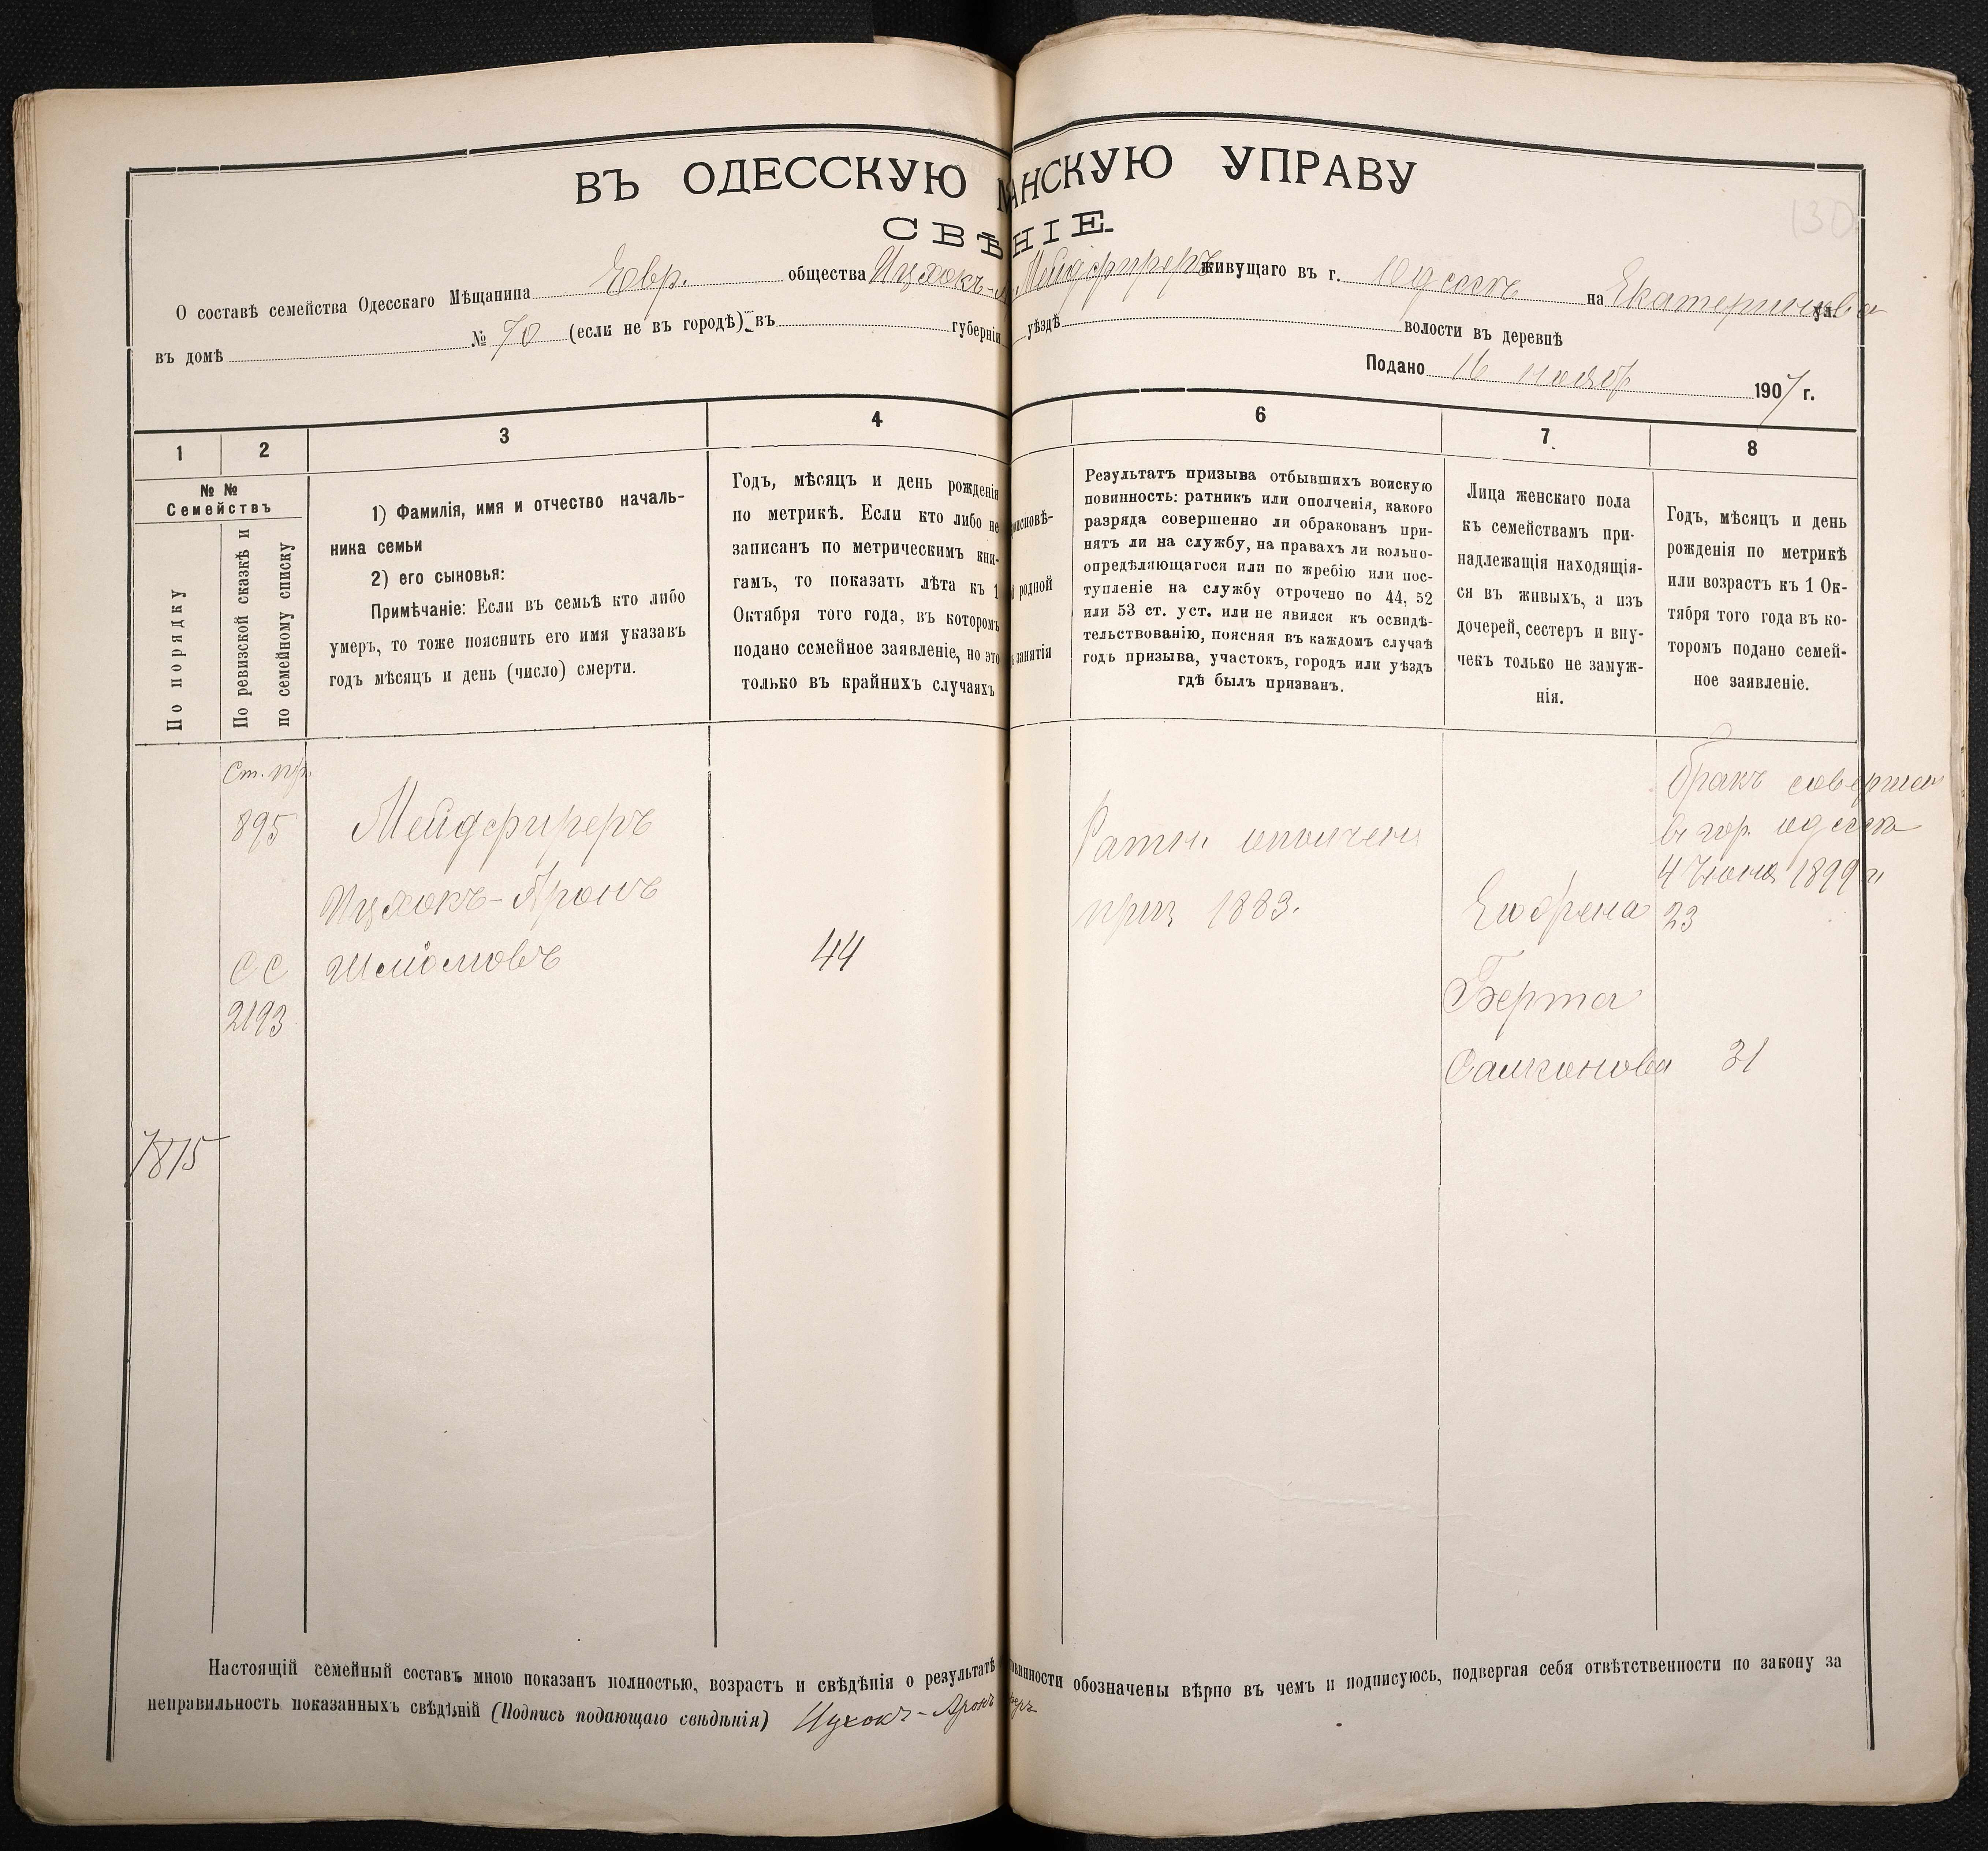 130
ВЪ ОДЕССКУЮ АНСКУЮ УПРАВУ
СВѢНІЕ
О составѣ семейства Одесскаго Мѣщанина Евр. общества Ицхокъ- Мейдфиреръ живущаго въ г. Одессѣ на Екатеринова ул.
въ домѣ № 70 (если не въ городѣ) въ губерніи уѣздѣ волости въ деревнѣ
Подано 16 нояб 1907 г.
1 2 3 4 6 7 8
№ №
Семействъ
По порядку
По ревизской сказкѣ и
по семейному списку
1) Фамилія, имя и отчество началь-
ника семьи
2) его сыновья:
Примѣчаніе: Если въ семьѣ кто либо
умеръ, то тоже пояснить его имя указавъ
годъ мѣсяцъ и день (число) смерти.
Годъ, мѣсяцъ и день рожденія
по метрикѣ. Если кто либо не
записанъ по метрическимъ кни-
гамъ, то показать лѣта къ 1
Октября того года, въ которомъ
подано семейное заявленіе, но это
только въ крайнихъ случаяхъ
исповѣ-
родной
занятія
Результатъ призыва отбывшихъ воискую
повинность: ратникъ или ополченія, какого
разряда совершенно ли обракованъ при-
нятъ ли на службу, на правахъ ли вольно-
опредѣляющагося или по жребію или пос-
тупленіе на службу отрочено по 44, 52
или 53 ст. уст. или не явился къ освидѣ-
тельствованію, поясняя въ каждомъ случаѣ
годъ призыва, участокъ, городъ или уѣздъ
гдѣ былъ призванъ.
Лица женскаго пола
къ семействамъ при-
надлежащія находящія-
ся въ живыхъ, а изъ
дочерей, сестеръ и вну-
чекъ только не замуж-
нія.
Годъ, мѣсяцъ и день
рожденія по метрикѣ
или возрастъ къ 1 Ок-
тября того года въ ко-
торомъ подано семей-
ное заявленіе.
Ст. пр.
895
СС
2193
7875
Мейдфиреръ
Ицхокъ-Аронъ
Шліомовъ
44
Ратн. ополчен
приз 1883.
Берта
31
бракъ соверш
в гор. одесса
4 Июня 1899 г
23
Настоящій семейный составъ мною показанъ полностью, возрастъ и свѣдѣнія о результатѣ овинности обозначены вѣрно въ чемъ и подписуюсь, подвергая себя отвѣтственности по закону за
неправильность показанныхъ свѣдѣній (Подпись подающаго свѣдѣнія) Ицхокъ-Аронъ реръ